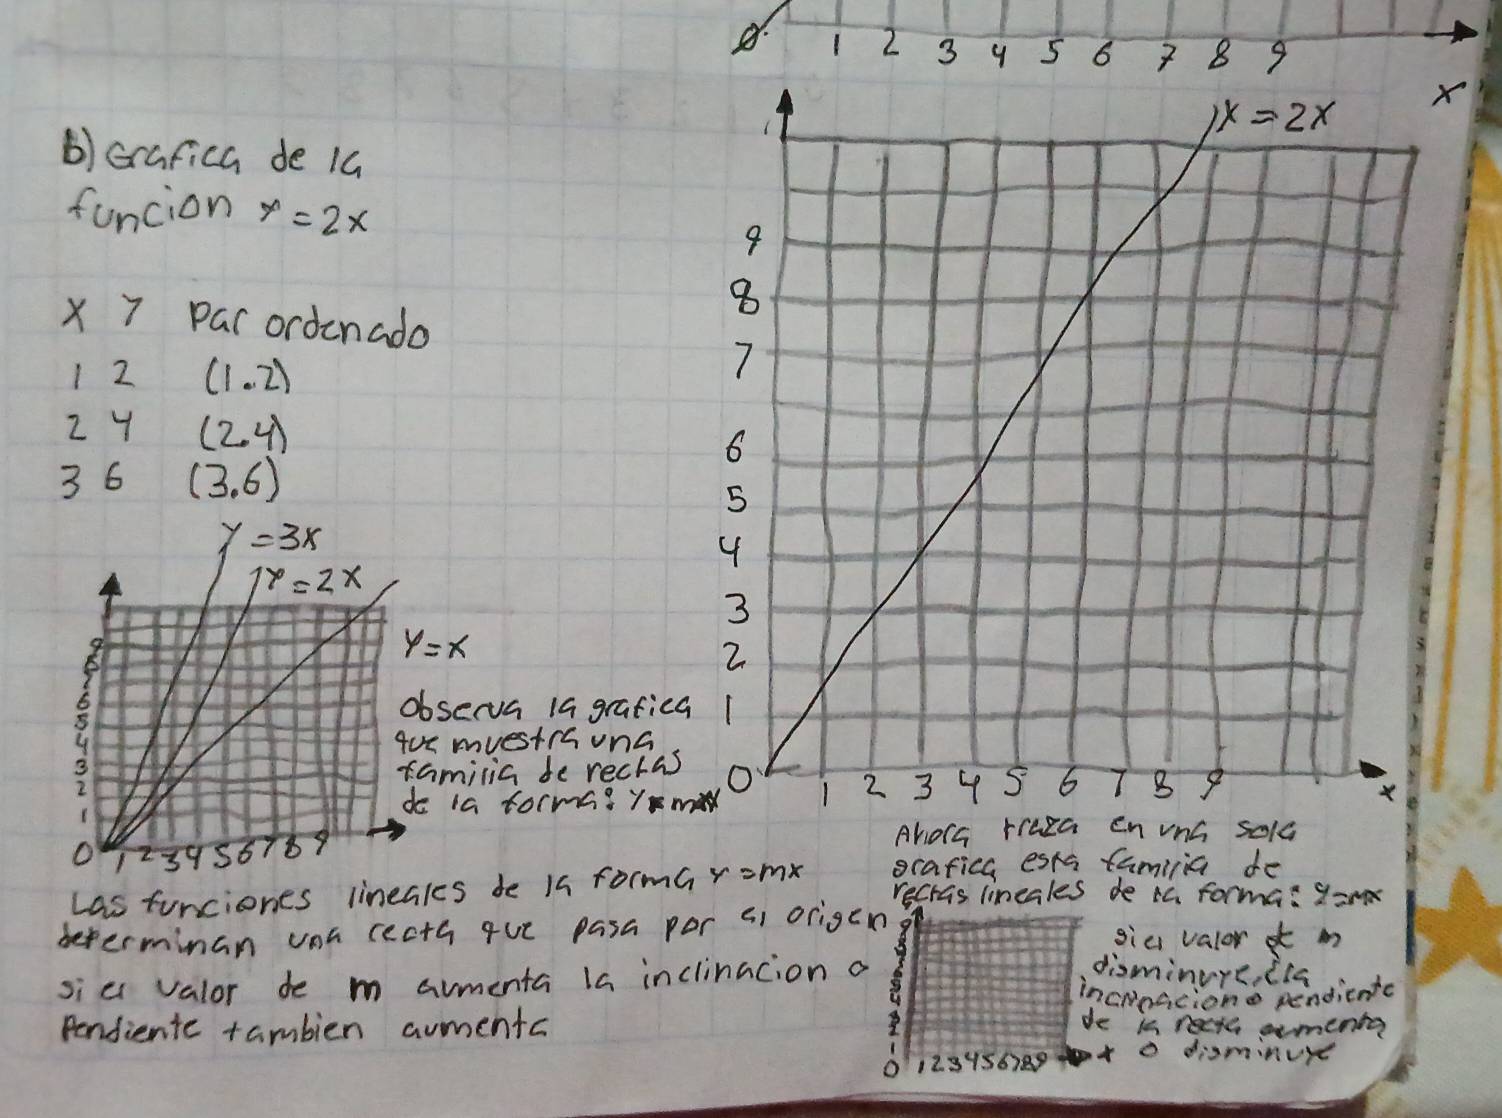 0 1 2 3 4 5 6 7 8 9
x
b) Grafica de la
funcion y = 2x
x y Par ordenado
1 2 (1.2)
2 4 (2.4)
3 6 (3.6)
y = 2x
9
8
7
6
5
4
3
2
1
0 1 2 3 4 5 6 7 8 9
x
y = 3x
y = 2x
y = x
9
8
7
6
5
4
3
2
1
0 1 2 3 4 5 6 7 8 9
Observa la grafica
que muestra una
familia de rectas
de la forma: y = mx
Las funciones lineales de la forma y = mx
determinan una recta que pasa por el origen
si el valor de m aumenta la inclinacion o
Pendiente tambien aumenta
Ahora traza en una sola
grafica esta familia de
rectas lineales de la forma: y = mx
0 1 2 3 4 5 6 7 8 9
x
si el valor de m
disminuye, ¿la
inclinacion o pendiente
de la recta aumenta
o disminuye